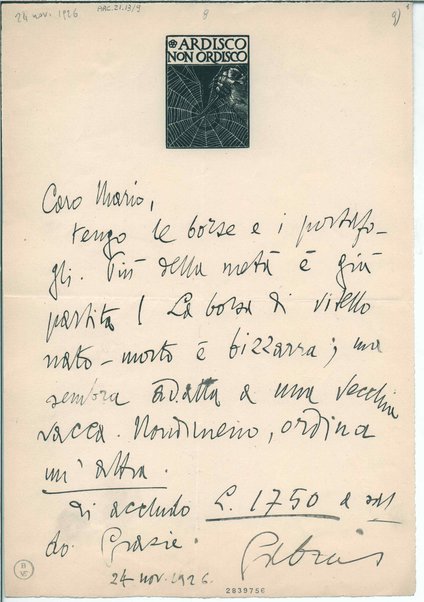 24 nov. 1926
ARC.21.13/9
9
9)
ARDISCO
NON ORDISCO
Caro Mario,
tengo le borse e i portafo-
gli. Più della metà è già
partita! La borsa di vitello
nato-morto è bizzarra; ma
sembra adatta a una vecchia
vacca. Nondimeno, ordina
un'altra.
Ti accludo L. 1750 a sal
do. Grazie.
24 nov. 1926.
2839756